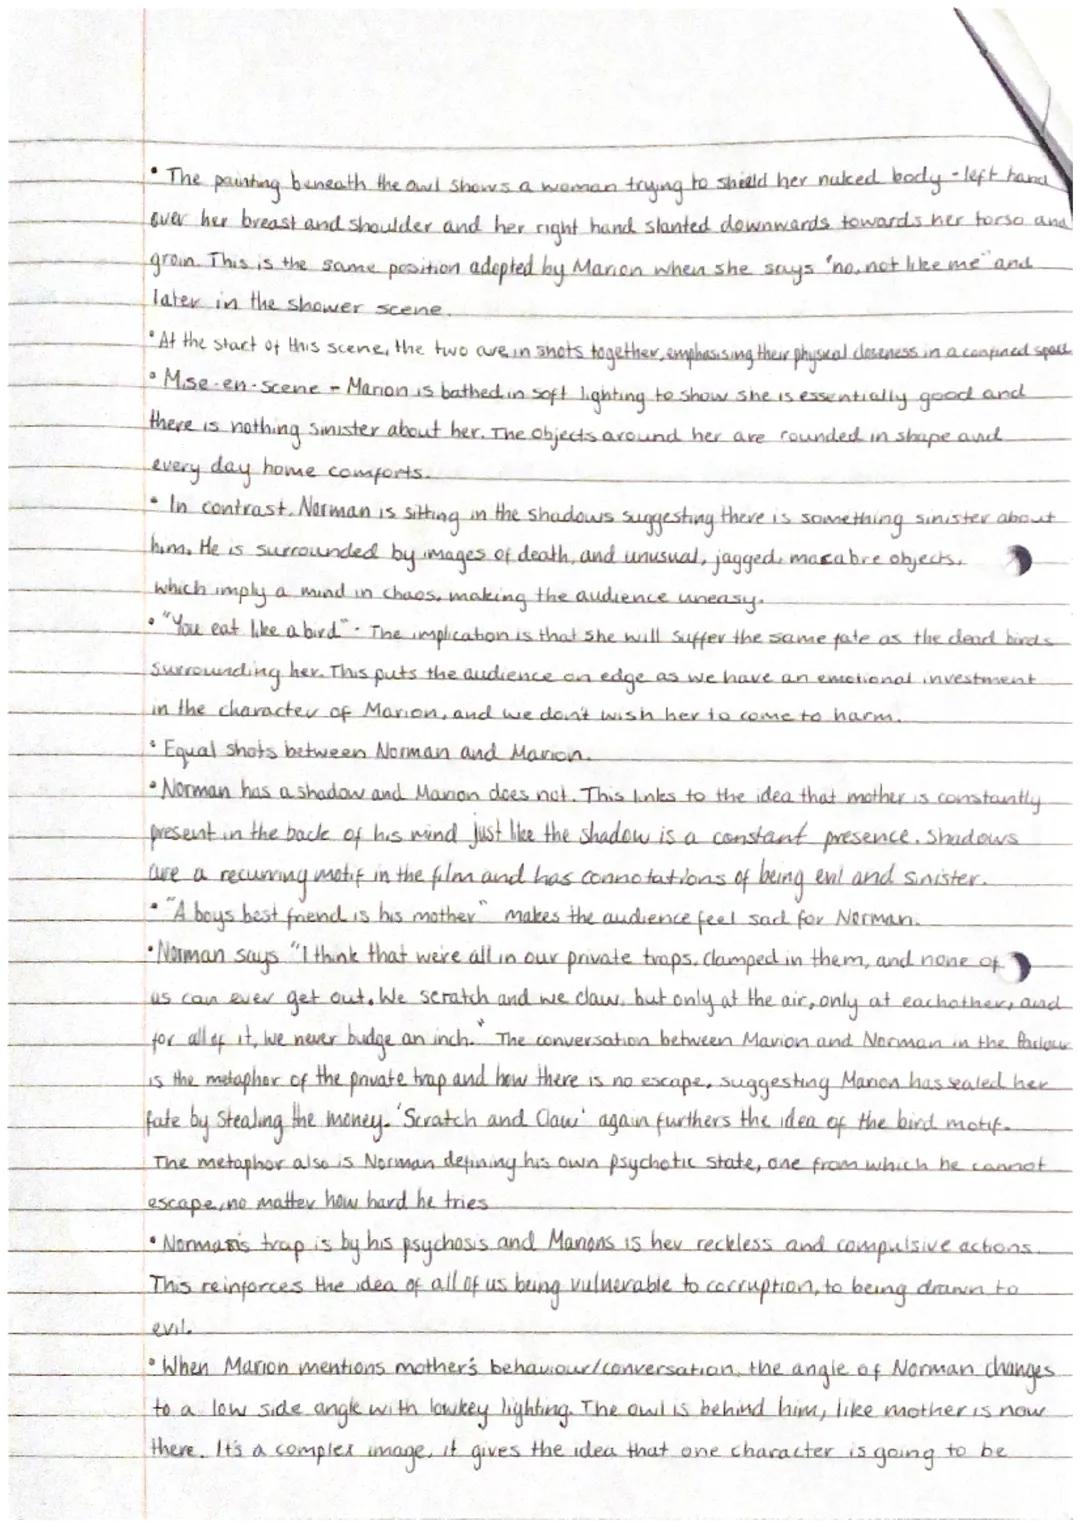 • The painting beneath the owl shows a woman trying to shield her naked body - left hand
over her breast and shoulder and her right hand slanted downwards towards her torso and
groin. This is the same position adopted by Marion when she says "no, not like me" and
later in the shower scene.
• At the start of this scene, the two are in shots together, emphasising their physical closeness in a confined space
• Mise-en-scene - Marion is bathed in soft lighting to show she is essentially good and
there is nothing sinister about her. The objects around her are rounded in shape and
every day home comforts.
• In contrast, Norman is sitting in the shadows suggesting there is something sinister about
him. He is surrounded by images of death, and unusual, jagged, macabre objects,
which imply a mind in chaos, making the audience uneasy.
• "You eat like a bird" - The implication is that she will suffer the same fate as the dead birds
surrounding her. This puts the audience on edge as we have an emotional investment
in the character of Marion, and we don't wish her to come to harm.
• Equal shots between Norman and Marion.
• Norman has a shadow and Marion does not. This links to the idea that mother is constantly
present in the back of his mind just like the shadow is a constant presence. Shadows
are a recurring motif in the film and has connotations of being evil and sinister.
• "A boys best friend is his mother" makes the audience feel sad for Norman.
• Norman says "I think that we're all in our private traps, clamped in them, and none of
us can ever get out. We scratch and we claw, but only at the air, only at eachother, and
for all of it, we never budge an inch." The conversation between Marion and Norman in the Parlour
is the metaphor of the private trap and how there is no escape, suggesting Marion has sealed her
fate by stealing the money. 'Scratch and Claw' again furthers the idea of the bird motif.
The metaphor also is Norman defining his own psychotic state, one from which he cannot
escape, no matter how hard he tries
• Norman's trap is by his psychosis and Marions is her reckless and compulsive actions.
This reinforces the idea of all of us being vulnerable to corruption, to being drawn to
evil.
• When Marion mentions mother's behaviour/conversation, the angle of Norman changes
to a low side angle with lowkey lighting. The owl is behind him, like mother is now
there. It's a complex image, it gives the idea that one character is going to be